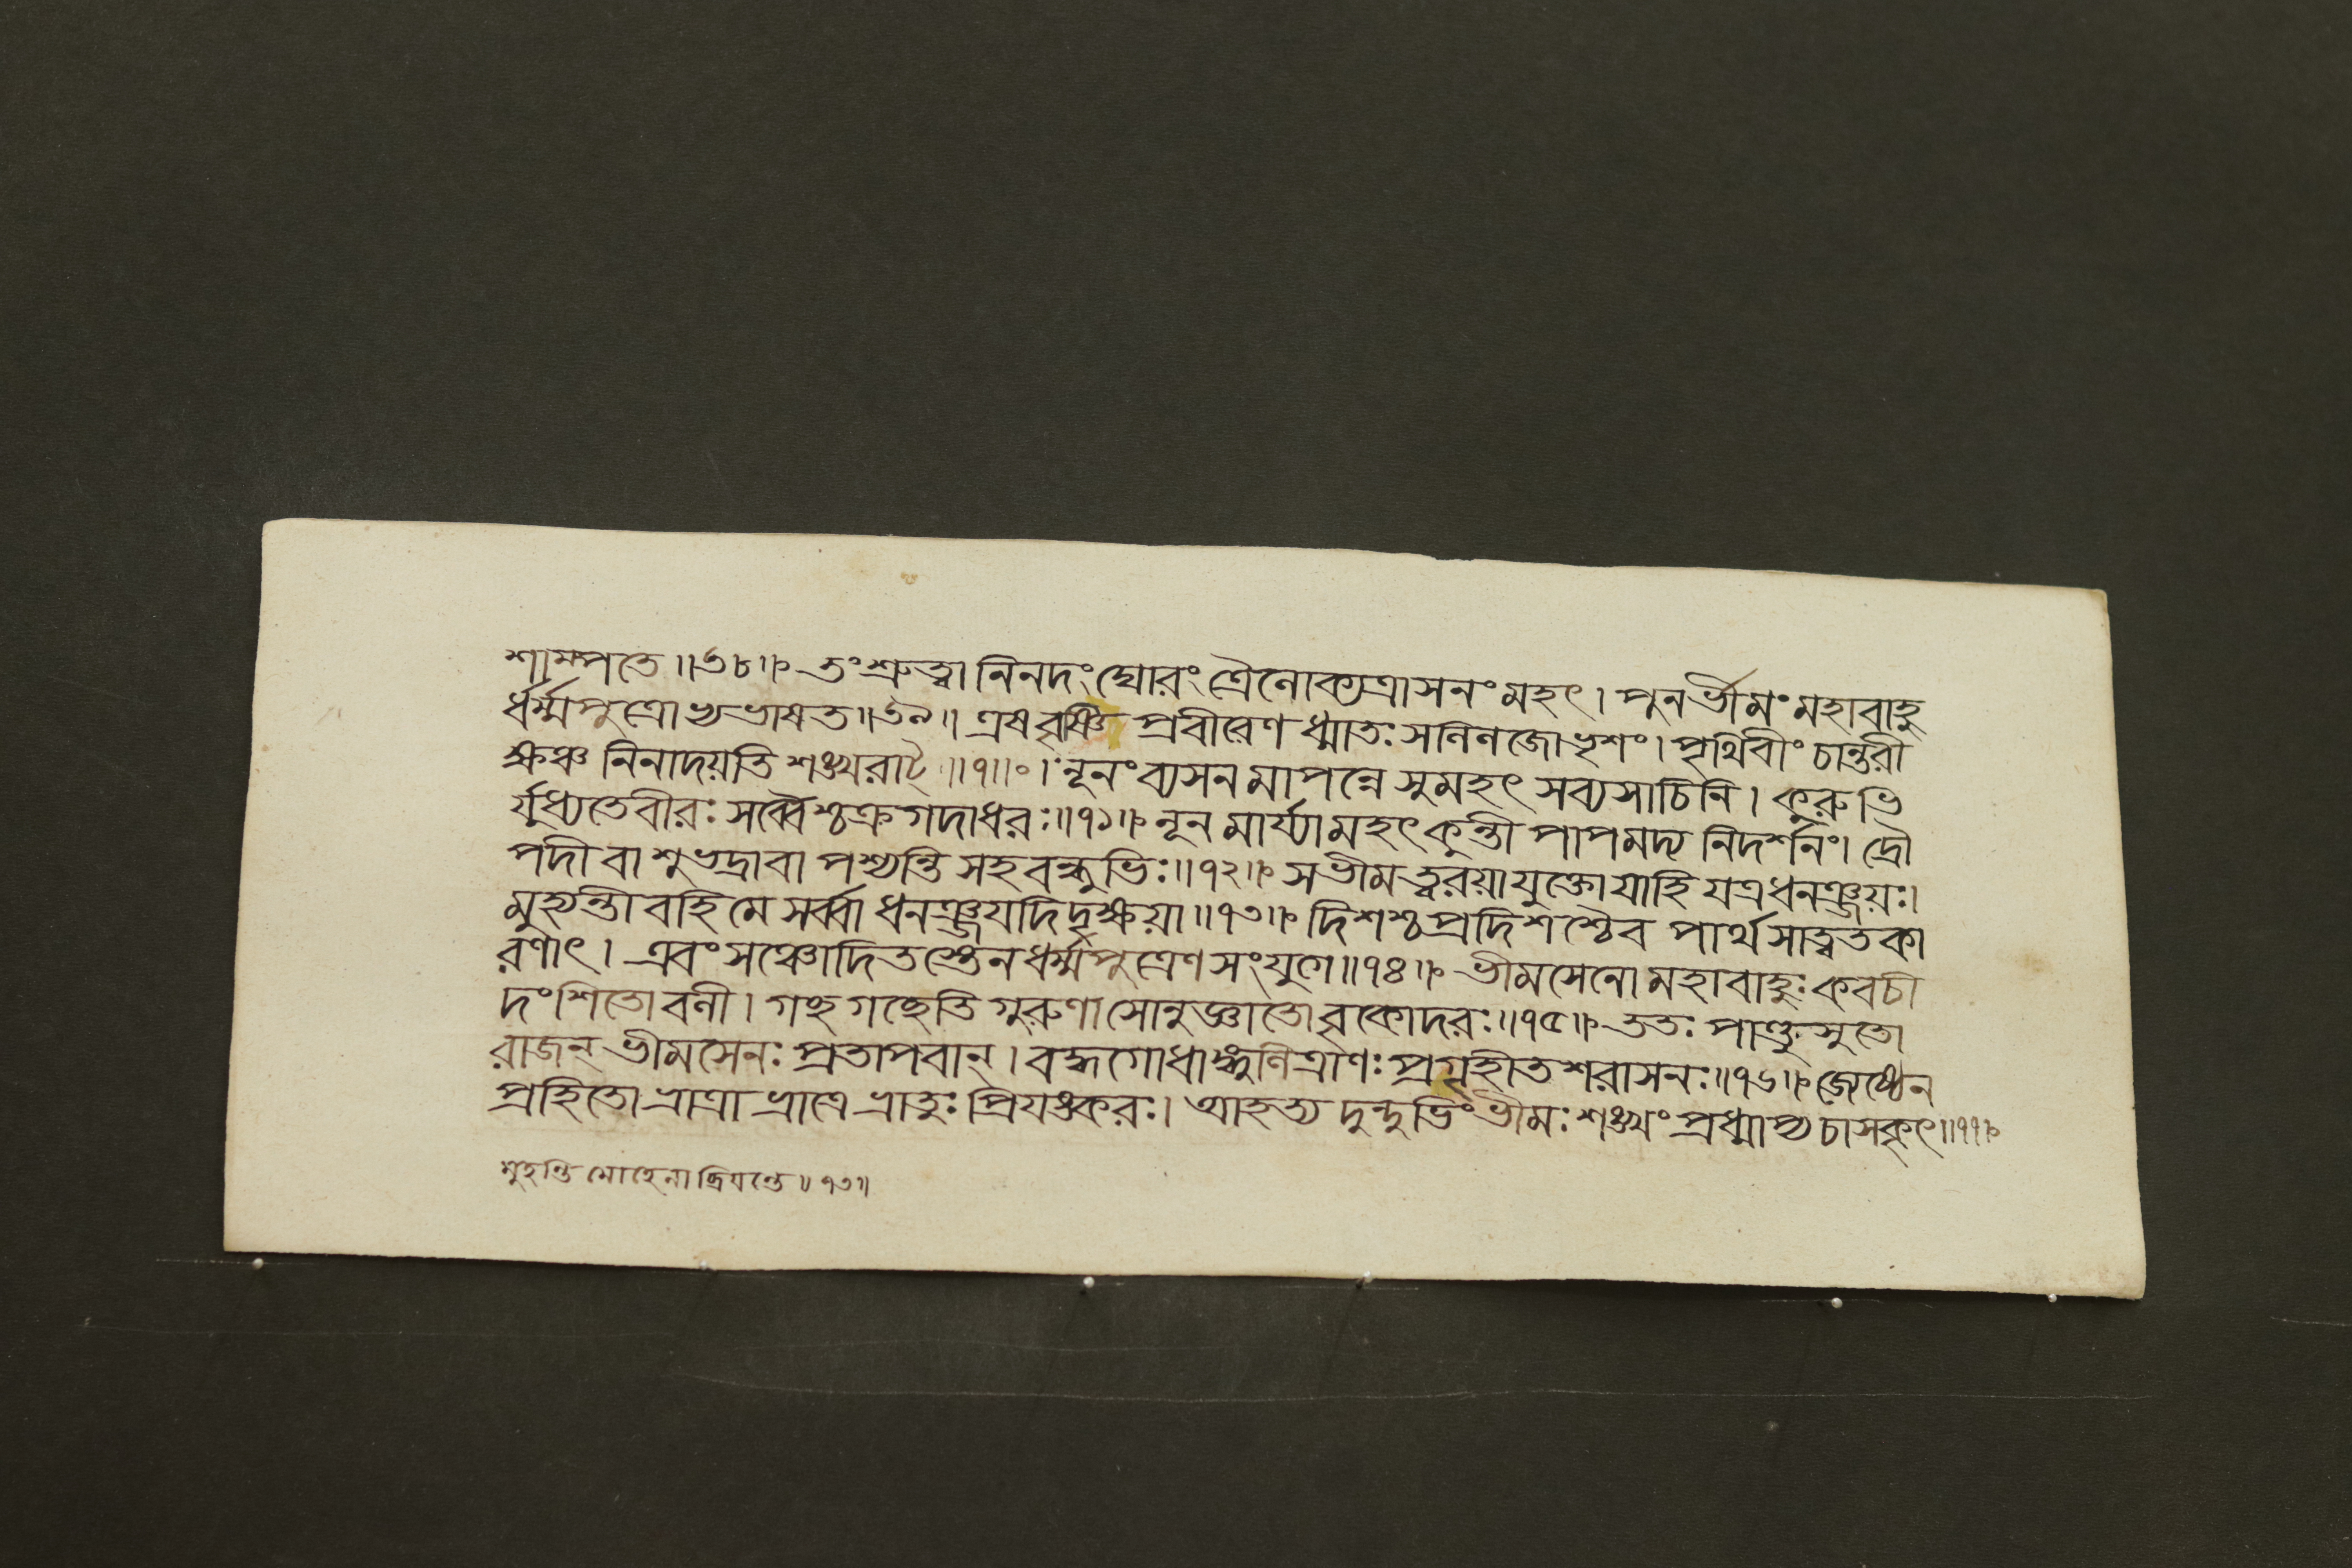 শাম্পতে॥৬৮॥ তংশ্রুত্বা নিনদং ঘোরং ত্রৈলোক্যত্রাসনং মহৎ। পুনর্ভীমং মহাবাহু
র্ধর্ম্মপুত্রোভ্যভাষত॥৬৯॥ এষবৃষ্ণি প্রবীরেণ ধ্মাতঃ সলিলজোভৃশং। পৃথিবীং চান্তরী
ক্ষঞ্চ নিনাদয়তি শঙ্খরাট্ ॥৭॥০। নূনং ব্যসনমাপন্নে সুমহৎ সব্যসাচিনি। কুরুভি
র্যুধ্যতেবীরঃ সর্ব্বৈশ্চক্রগদাধরঃ॥৭১॥ নূনমার্য্যামহৎকুন্তী পাপমদ্য নিদর্শনং। দ্রৌ
পদী বা শুভদ্রাবা পশ্যন্তি সহবন্ধুভিঃ॥৭২॥ সভীমত্বরয়াযুক্তোযাহি যত্রধনঞ্জয়ঃ।
মুহ্যন্তীবহি মে সর্ব্বা ধনঞ্জয়দিদৃক্ষয়া॥৭৩॥ দিশশ্চপ্রদিশশ্চৈব পার্থসাত্বতকা
রণাৎ। এবংসঞ্চোদিতস্তেনধর্ম্মপুত্রেণ সংযুগে॥৭৪॥ ভীমসেনো মহাবাহুঃ কবচী
দংশিতোবলী। গচ্ছ গচ্ছেতি গুরুণা সোনুজ্ঞাতো বৃকোদরঃ॥৭৫॥ ততঃ পাণ্ডুসুতো
রাজন্ ভীমসেনঃ প্রতাপবান্। বদ্ধগোধাঙ্গুলিত্রাণঃ প্রগৃহীতশরাসনঃ॥৭৬॥ জ্যেষ্ঠেন
প্রহিতো ভ্রাত্রা ভ্রাত্রে ভ্রাতুঃ প্রিযঙ্করঃ। আহত্য দুন্দুভিং ভীমঃ শঙ্খং প্রধ্মাপ্য চাসকৃৎ॥৭৭॥
মুহন্তি মোহেনা ॥৭৩॥